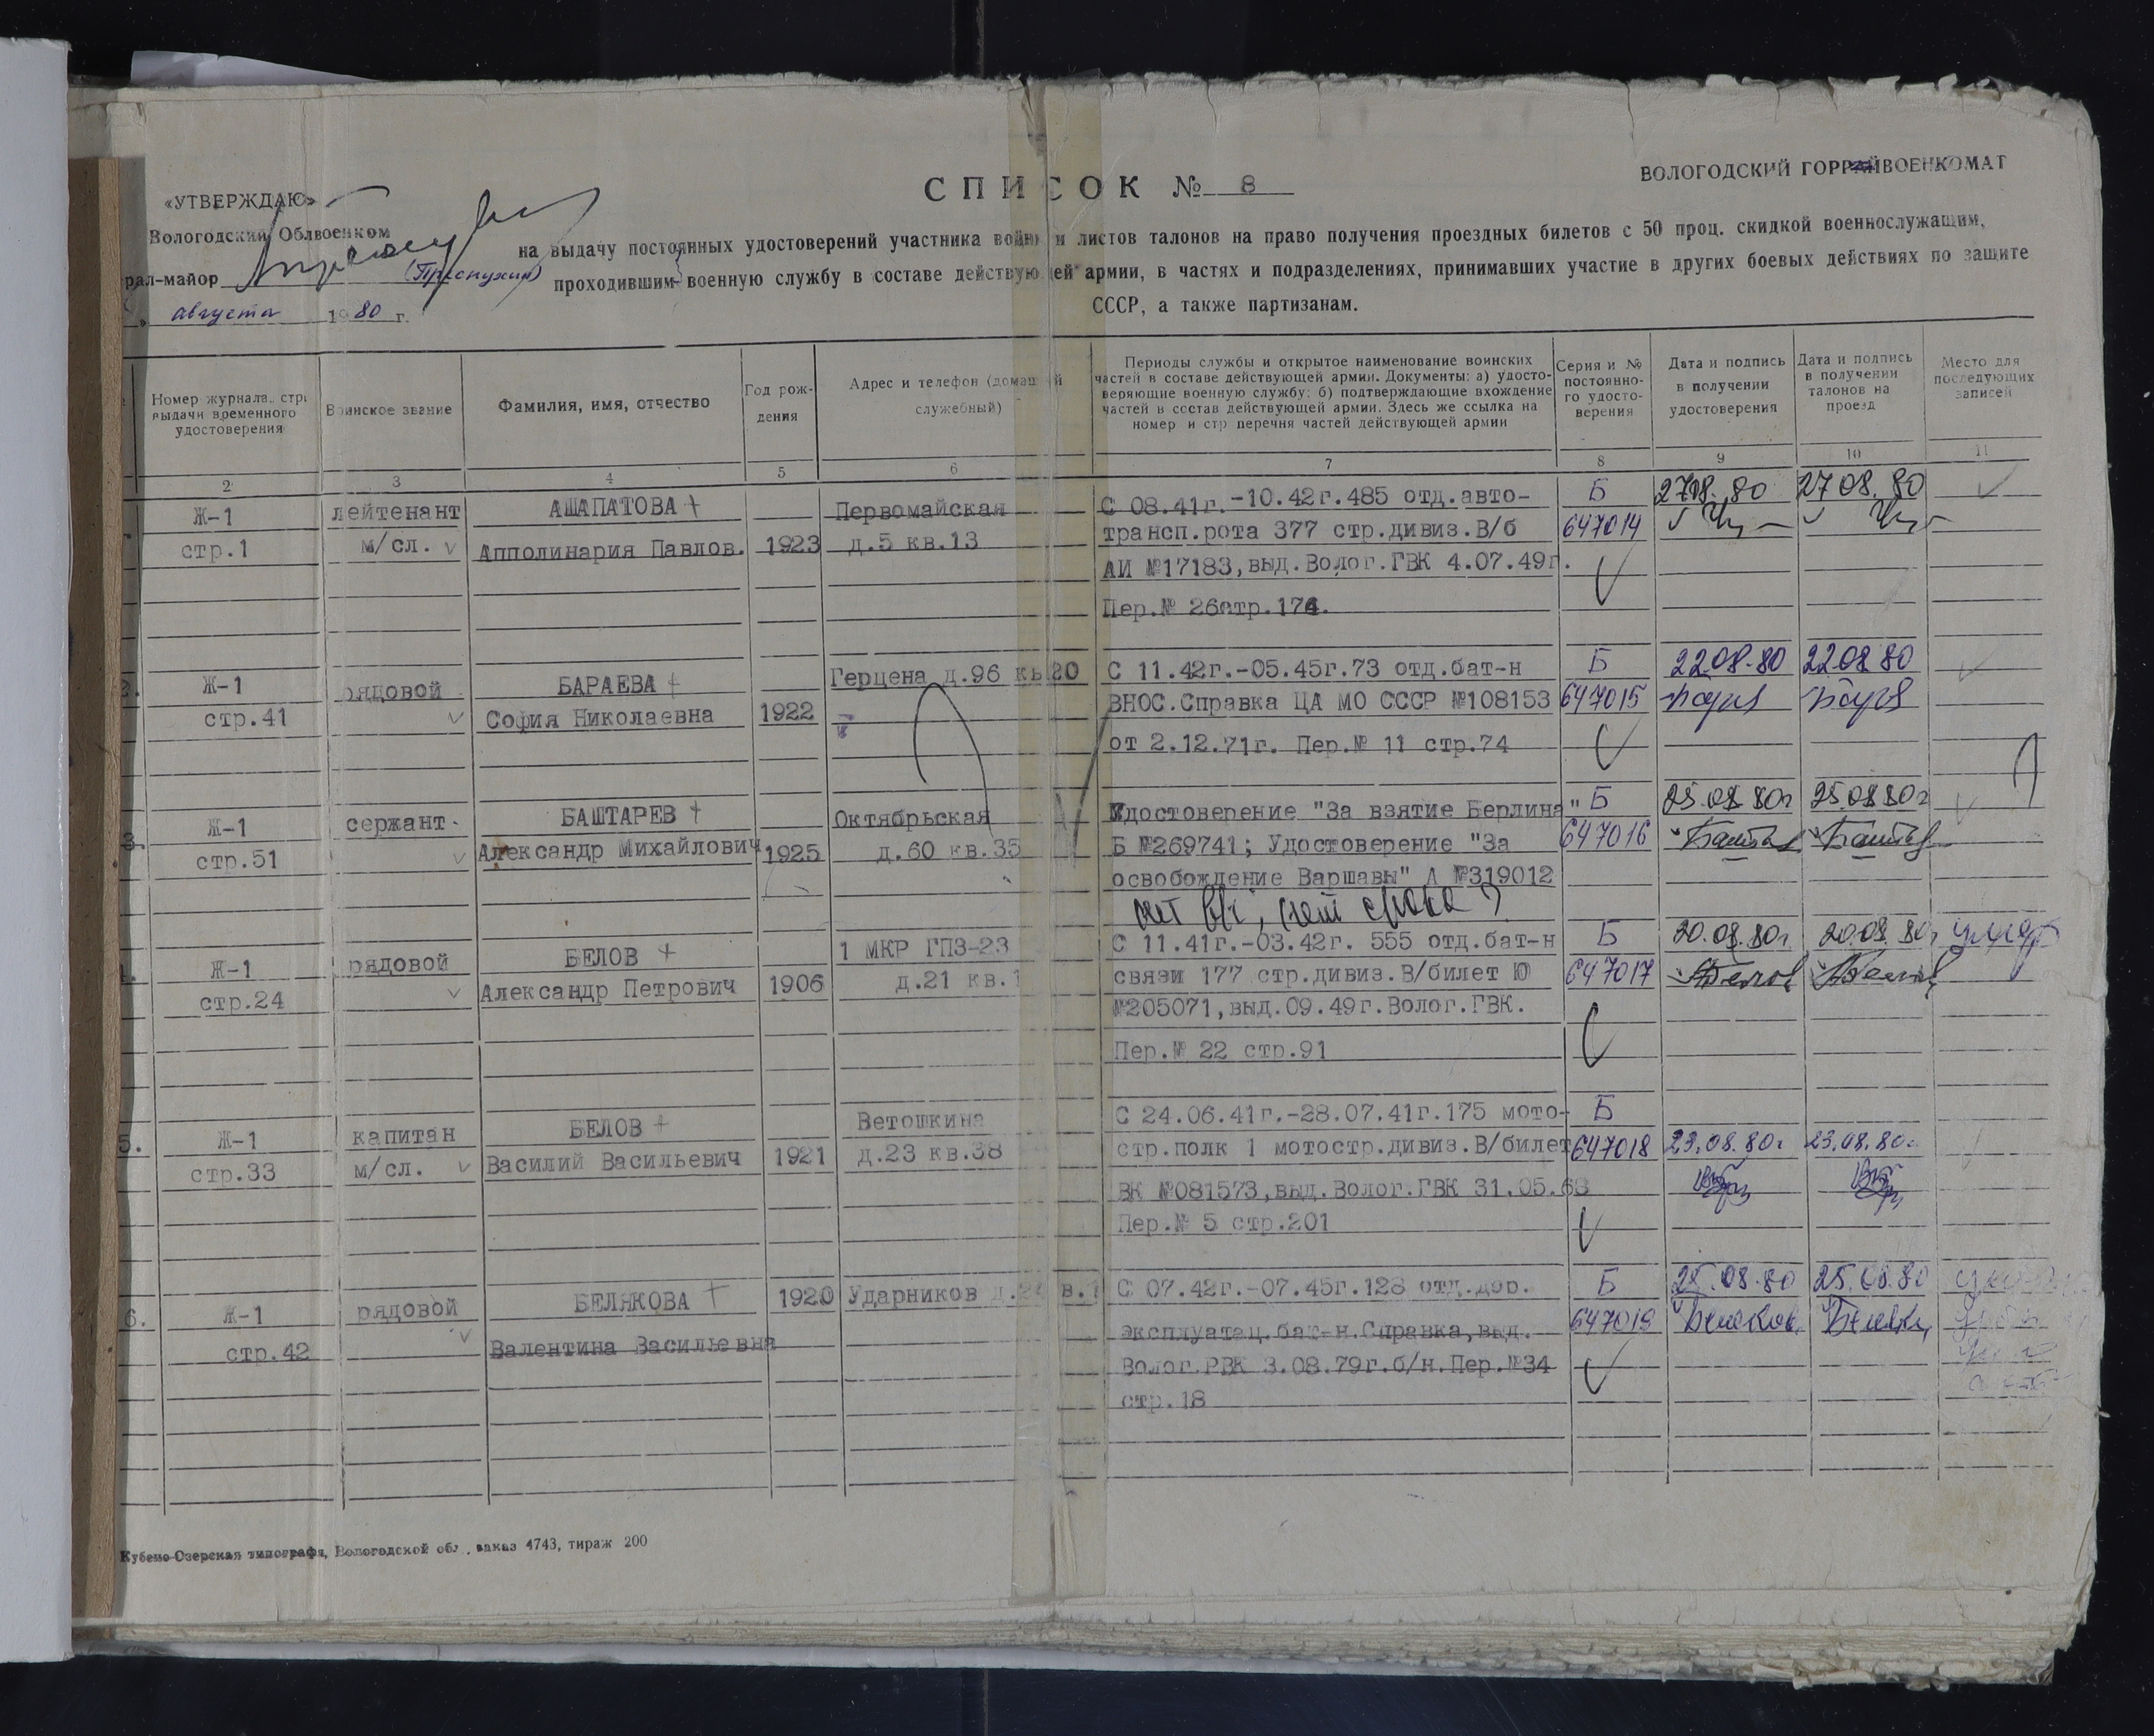 ВОЛОГОДСКИЙ ГОРРАЙВОЕНКОМАТ
«УТВЕРЖДАЮ»
Вологодский Облвоенком
рал-майор
августа 1980 г.
СПИСОК № 8
на выдачу постоянных удостоверений участника войны и листов талонов на право получения проездных билетов с 50 проц. скидкой военнослужащим,
проходившим военную службу в составе действующей армии, в частях и подразделениях, принимавших участие в других боевых действиях по защите
СССР, а также партизанам.
Номер журнала, стр.
выдачи временного
удостоверения
Воинское звание
Фамилия, имя, отчество
Год рож-
дения
Адрес и телефон (домаш й
служебный)
Периоды службы и открытое наименование воинских
частей в составе действующей армии. Документы: а) удосто-
веряющие военную службу; б) подтверждающие вхождение
частей в состав действующей армии. Здесь же ссылка на
номер и стр перечня частей действующей армии
Серия и №
постоянно-
го удосто-
верения
Дата и подпись
в получении
удостоверения
Дата и подпись
в получении
талонов на
проезд
Место для
последующих
записей
2 3 4 5 6 7 8 9 10 11
Ж-1
стр.1
лейтенант
м/сл.
АШАПАТОВА +
Апполинария Павлов.
1923
Первомайская
д.5 кв.13
С 08.41г.-10.42г.485 отд.авто-
трансп.рота 377 стр.дивиз.В/б
АИ №17183,выд.Волог.ГВК 4.07.49г.
Пер.№ 26стр.174.
Б
647014
27.08.80
27.08.80
2.
Ж-1
стр.41
рядовой
БАРАЕВА +
София Николаевна
1922
Герцена д.96 кв 20
С 11.42г.-05.45г.73 отд.бат-н
ВНОС.Справка ЦА МО СССР №108153
от 2.12.71г. Пер.№ 11 стр.74
Б
647015
22.08.80
22.08.80
3.
Ж-1
стр.51
сержант.
БАШТАРЕВ +
Александр Михайлович
1925
Октябрьская
д.60 кв.35
Удостоверение "За взятие Берлина"
Б №269741; Удостоверение "За
освобождение Варшавы" А №319012
нет в/ч, нет срока ?
Б
647016
25.08.80г
25.08.80г
4.
Ж-1
стр.24
рядовой
БЕЛОВ +
Александр Петрович
1906
1 МКР ГПЗ-23
д.21 кв.1
С 11.41г.-03.42г. 555 отд.бат-н
связи 177 стр.дивиз.В/билет Ю
№205071,выд.09.49г.Волог.ГВК.
Пер.№ 22 стр.91
Б
647017
20.08.80г.
20.08.80г.
5.
Ж-1
стр.33
капитан
м/сл.
БЕЛОВ +
Василий Васильевич
1921
Ветошкина
д.23 кв.38
С 24.06.41г.-28.07.41г.175 мото-
стр.полк 1 мотостр.дивиз.В/билет
ВК №081573,выд.Волог.ГВК 31.05.68
Пер.№ 5 стр.201
Б
647018
23.08.80г
23.08.80г
6.
Ж-1
стр.42
рядовой
БЕЛЯКОВА +
Валентина Васильевна
1920
Ударников
С 07.42г.-07.45г.128 отд.дор.
эксплуатац.бат-н.Справка,выд.
Волог.РВК 3.08.79г.б/н.Пер.№34
стр.18
Б
647019
25.08.80
25.08.80
Кубено-Озерская типография, Вологодской обл., заказ 4743, тираж 200